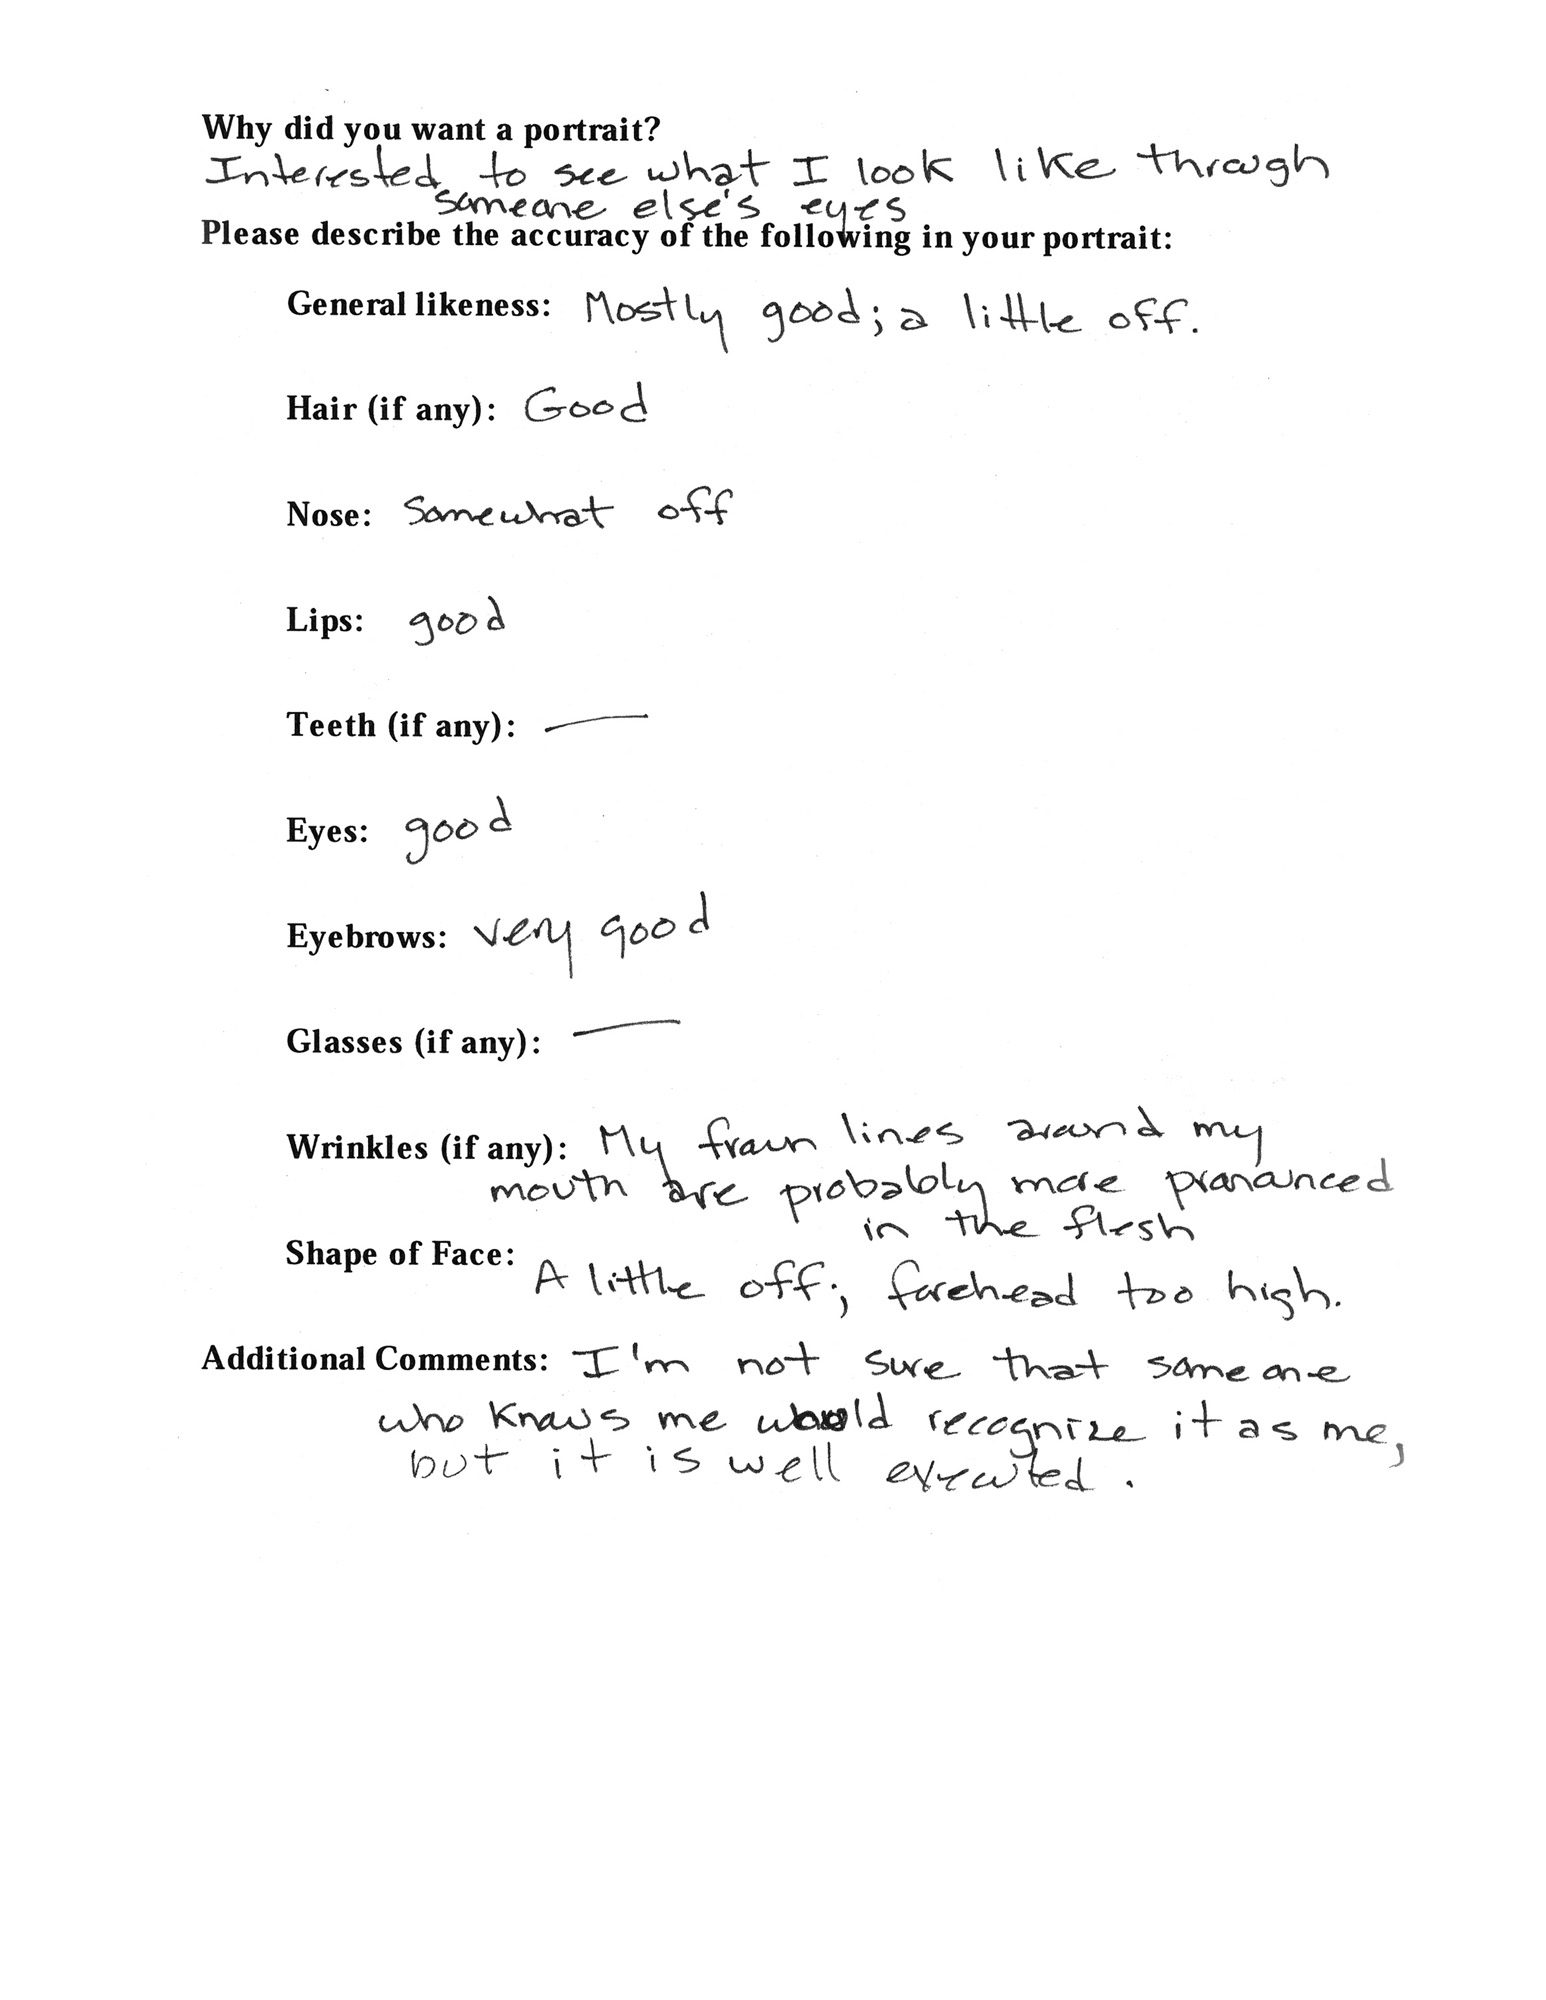 Why did you want a portrait?
Interested to see what I look like through
someone else's eyes
Please describe the accuracy of the following in your portrait:
General likeness: Mostly good; a little off.
Hair (if any): Good
Nose: Somewhat off
Lips: good
Teeth (if any): —
Eyes: good
Eyebrows: very good
Glasses (if any): —
Wrinkles (if any): My frown lines around my
mouth are probably more pronounced
in the flesh
Shape of Face: A little off; forehead too high.
Additional Comments: I'm not sure that someone
who knows me would recognize it as me,
but it is well executed.